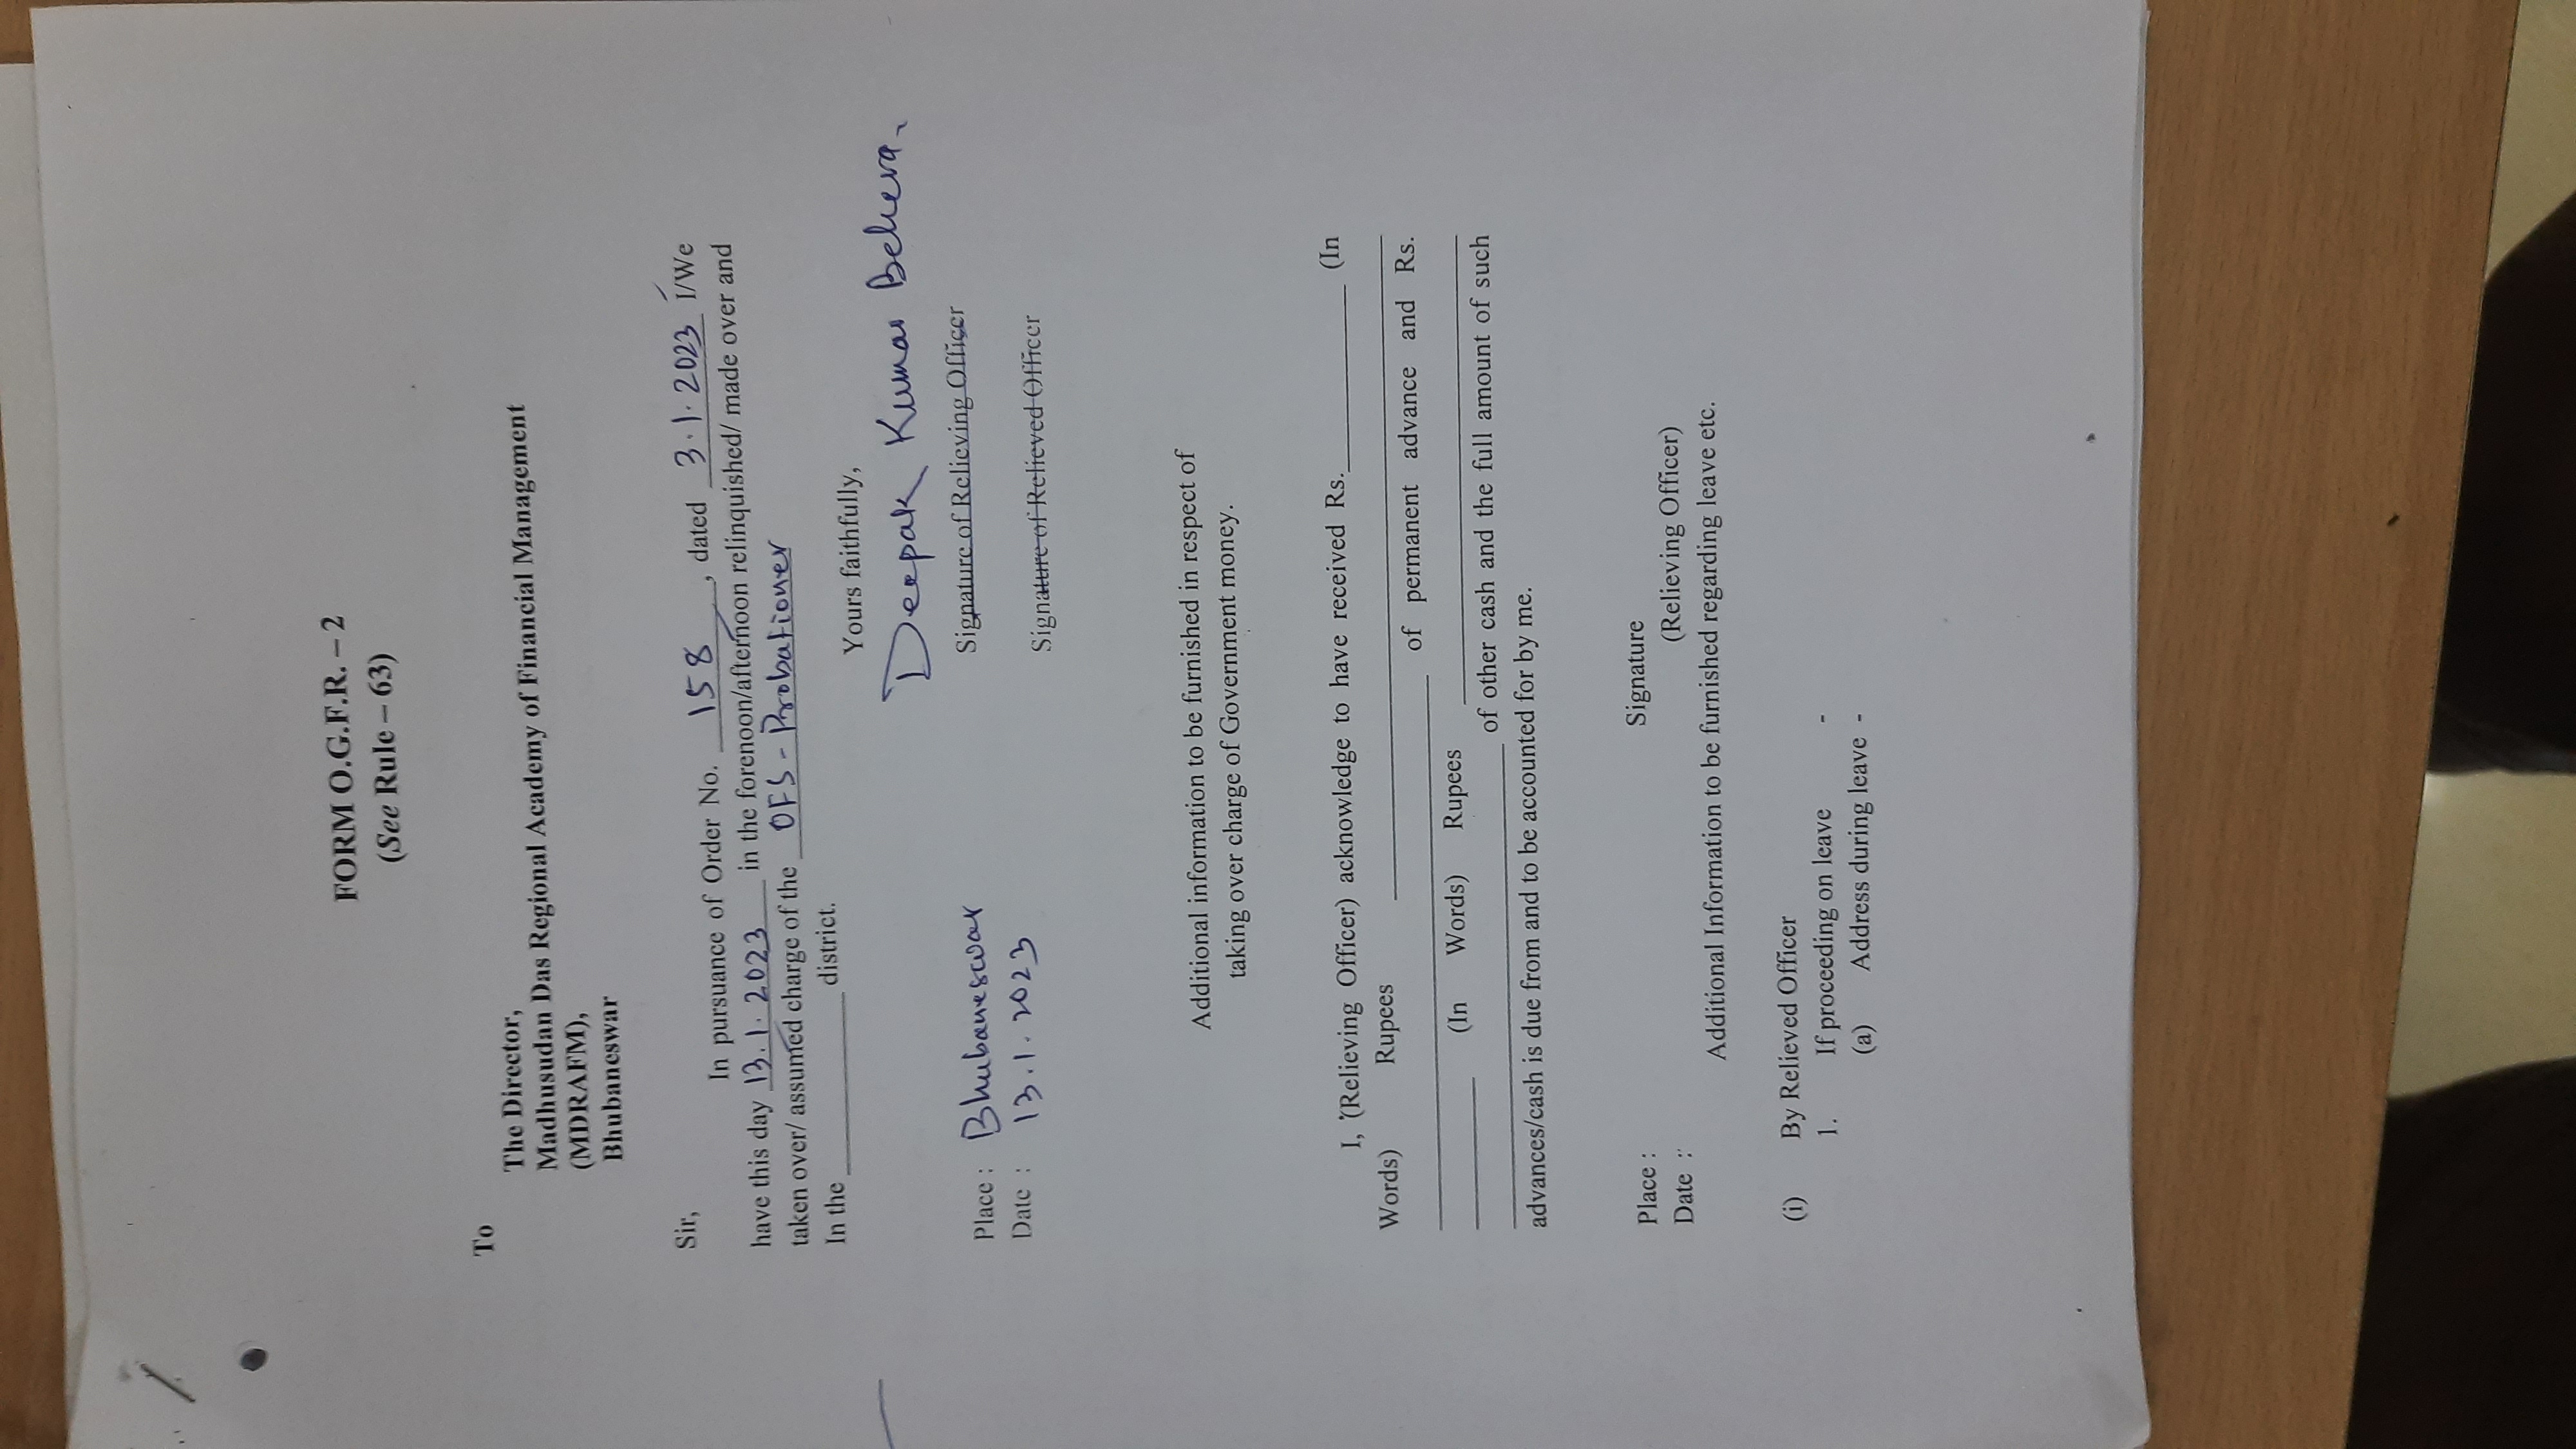 FORM O.G.F.R. – 2
(See Rule – 63)
To
The Director,
Madhusudan Das Regional Academy of Financial Management
(MDRAFM),
Bhubaneswar
Sir,
In pursuance of Order No. 158, dated 3.1.2023 I/We
have this day 13.1.2023 in the forenoon/afternoon relinquished/ made over and
taken over/ assumed charge of the OFS - Probationer
In the ____________ district.
Yours faithfully,
Deepak Kumar Behera
Signature of Relieving Officer
Place : Bhubaneswar
Date : 13.1.2023
Signature of Relieved Officer
Additional information to be furnished in respect of
taking over charge of Government money.
I, (Relieving Officer) acknowledge to have received Rs.____________ (In
Words) Rupees ____________
____________ of permanent advance and Rs.
____________ (In Words) Rupees ____________
____________ of other cash and the full amount of such
advances/cash is due from and to be accounted for by me.
Place : Signature
Date : (Relieving Officer)
Additional Information to be furnished regarding leave etc.
(i) By Relieved Officer
1. If proceeding on leave -
(a) Address during leave -